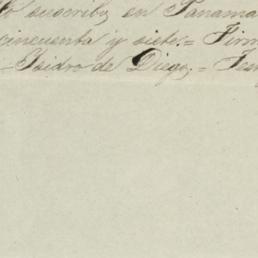 lo suscribo en Panama
cincuenta y siete.= Firm
Isidro de Diego.=